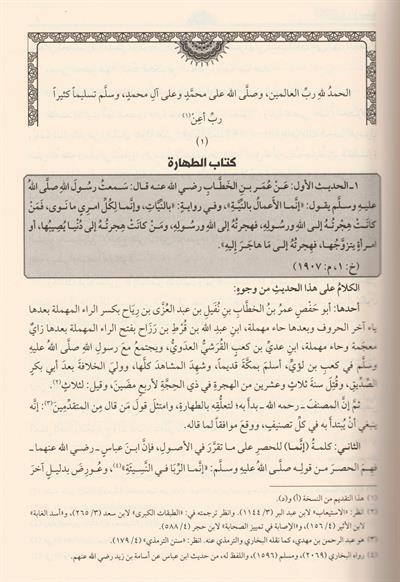 الحمدُ للهِ ربِّ العالمين، وصلَّى الله على محمَّدٍ وعلى آلِ محمدٍ، وسلَّم تسليماً كثيراً
ربِّ أعِنْ(١)
(١)
كتاب الطهارة
١ـ الحديث الأول: عَنْ عُمَر بنِ الخطَّابِ رضي الله عنه قال: سَمعتُ رسُولَ اللهِ صلَّى اللهُ
عليهِ وسلَّم يقول: «إنَّما الأعمالُ بالنِّيَّةِ»، وفي روايةٍ: «بالنِّيَّاتِ، وإنَّما لِكُلِّ امرِئٍ ما نَوى، فَمَنْ
كانَتْ هِجْرتُهُ إلى اللهِ ورسولِهِ، فهجرتُهُ إلى اللهِ ورسولِهِ، ومَنْ كانَتْ هجرتُهُ إلى دُنْيا يُصِيبُها، أو
امرأةٍ يتزوَّجُها، فهجرتُهُ إلى ما هَاجَرَ إليهِ».
(خ: ١، م: ١٩٠٧)
الكلامُ على هذا الحديثِ من وجوهٍ:
أحدها: أبو حَفْصٍ عمرُ بنُ الخطَّابِ بنِ نُفَيلِ بن عبد العُزَّى بنِ رِيَاح بكسر الراء المهملة بعدها
ياء آخر الحروف وبعدها حاء مهملة، ابنِ عبدِ الله بن قُرْطِ بن رَزَاح بفتح الراء المهملة بعدها زايٌ
معجَمة وحاء مهملة، ابنِ عديِّ بن كعبٍ القُرَشيُّ العدَويُّ، ويجتمعُ معَ رسولِ اللهِ صلَّى الله عليهِ
وسلَّم في كعبِ بن لؤيٍّ، أسلَمَ بمكَّةَ قديماً، وشهدَ المشاهدَ كلَّها، وولي الخلافةَ بعدَ أبي بكرٍ
الصِّدِّيق، وقُتِلَ سنةَ ثلاثٍ وعشرين من الهجرةِ في ذي الحِجَّةِ لأربعٍ مضَينَ، وقيل: لثلاثٍ(٢).
ثمَّ إنَّ المصنفَ ـ رحمه الله ـ بدأ به؛ لتعلُّقِه بالطهارةِ، وامتثلَ قولَ مَن قال مِن المتقدِّمين(٣): إنَّه
ينبغي أنْ يُبتدَأ به في كلِّ تصنيفٍ، ووقعَ موافقاً لما قاله.
الثاني: كلمةُ (إنَّما) للحصرِ على ما تقرَّرَ في الأصول، فإنَّ ابنَ عباسٍ ـ رضي الله عنهما ـ
فهمَ الحصرَ من قولِه صلَّى اللهُ عليهِ وسلَّم: «إنَّما الرِّبا في النَّسِيئَةِ»(٤)، وعُورِضَ بدليلٍ آخرَ
(١) هذا التقديم من النسخة (أ) و(د).
(٢) انظر: «الاستيعاب» لابن عبد البر (٣/ ١١٤٤). وانظر ترجمته في: «الطبقات الكبرى» لابن سعد (٣/ ٢٦٥)، و«أسد الغابة»
لابن الأثير (٤/ ١٥٦)، و«الإصابة في تمييز الصحابة» لابن حجر (٤/ ٥٨٨).
(٣) هو عبد الرحمن بن مهدي، كما نقله البخاري والترمذي عنه. انظر: «سنن الترمذي» (٤/ ١٧٩).
(٤) رواه البخاري (٢٠٦٩)، ومسلم (١٥٩٦)، واللفظ له، من حديث ابن عباس عن أسامة بن زيد رضي الله عنهم.